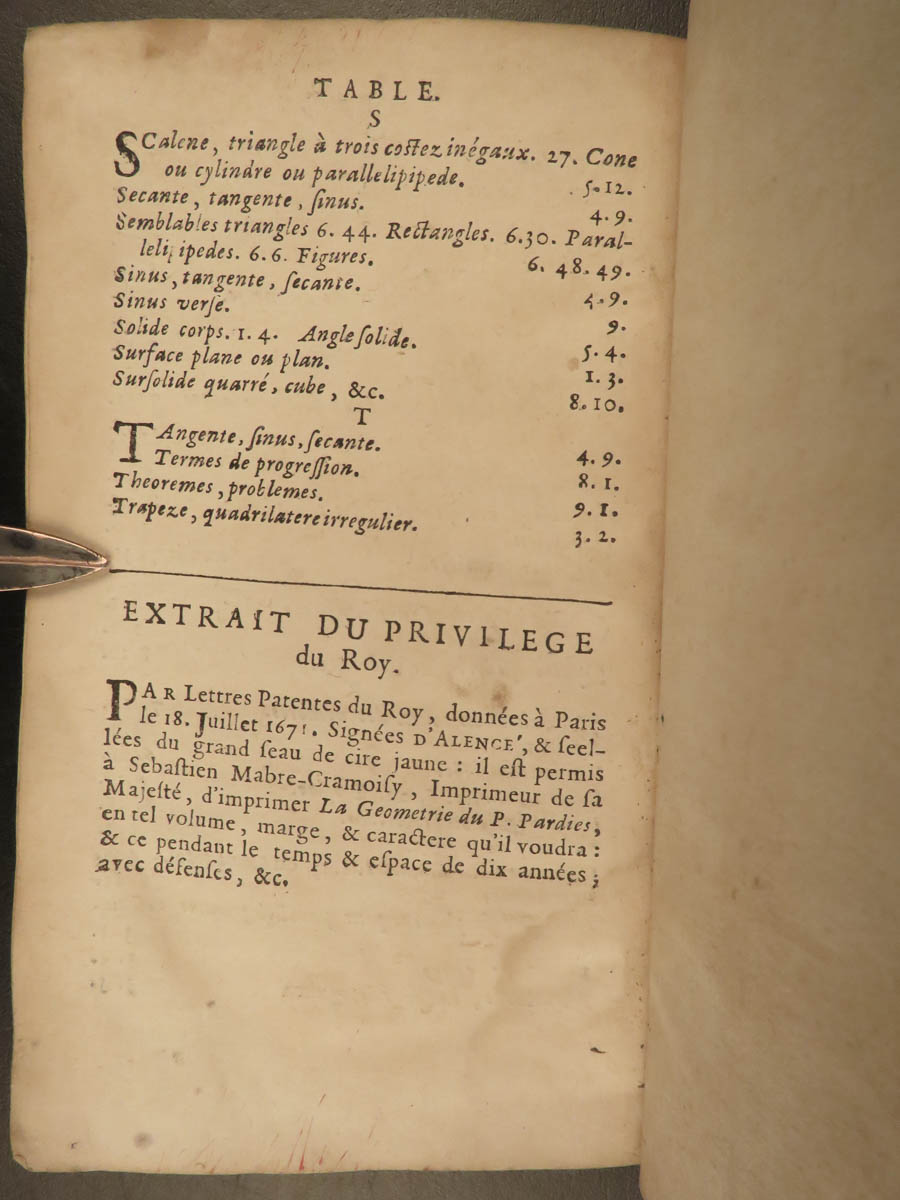 TABLE.
S
SCalene, triangle à trois costez inégaux. 27. Cone
ou cylindre ou parallelipipede. 5. 12.
Secante, tangente, ſinus. 4. 9.
Semblables triangles 6. 44. Rectangles. 6. 30. Paral-
lelipipedes. 6. 6. Figures. 6. 48. 49.
Sinus, tangente, ſecante. 4. 9.
Sinus verſe. 9.
Solide corps. 1. 4. Angle ſolide. 5. 4.
Surface plane ou plan. 1. 3.
Surſolide quarré, cube, &c. 8. 10.
T
TAngente, ſinus, ſecante. 4. 9.
Termes de progreſſion. 8. 1.
Theoremes, problemes. 9. 1.
Trapeze, quadrilatere irregulier. 3. 2.
EXTRAIT DU PRIVILEGE
du Roy.
PAR Lettres Patentes du Roy, données à Paris
le 18. Juillet 1671. Signées D'ALENCE', & ſeel-
lées du grand ſeau de cire jaune : il eſt permis
à Sebaſtien Mabre-Cramoiſy, Imprimeur de ſa
Majeſté, d'imprimer La Geometrie du P. Pardies,
en tel volume, marge, & caractere qu'il voudra :
& ce pendant le temps & eſpace de dix années ;
avec défenſes, &c.